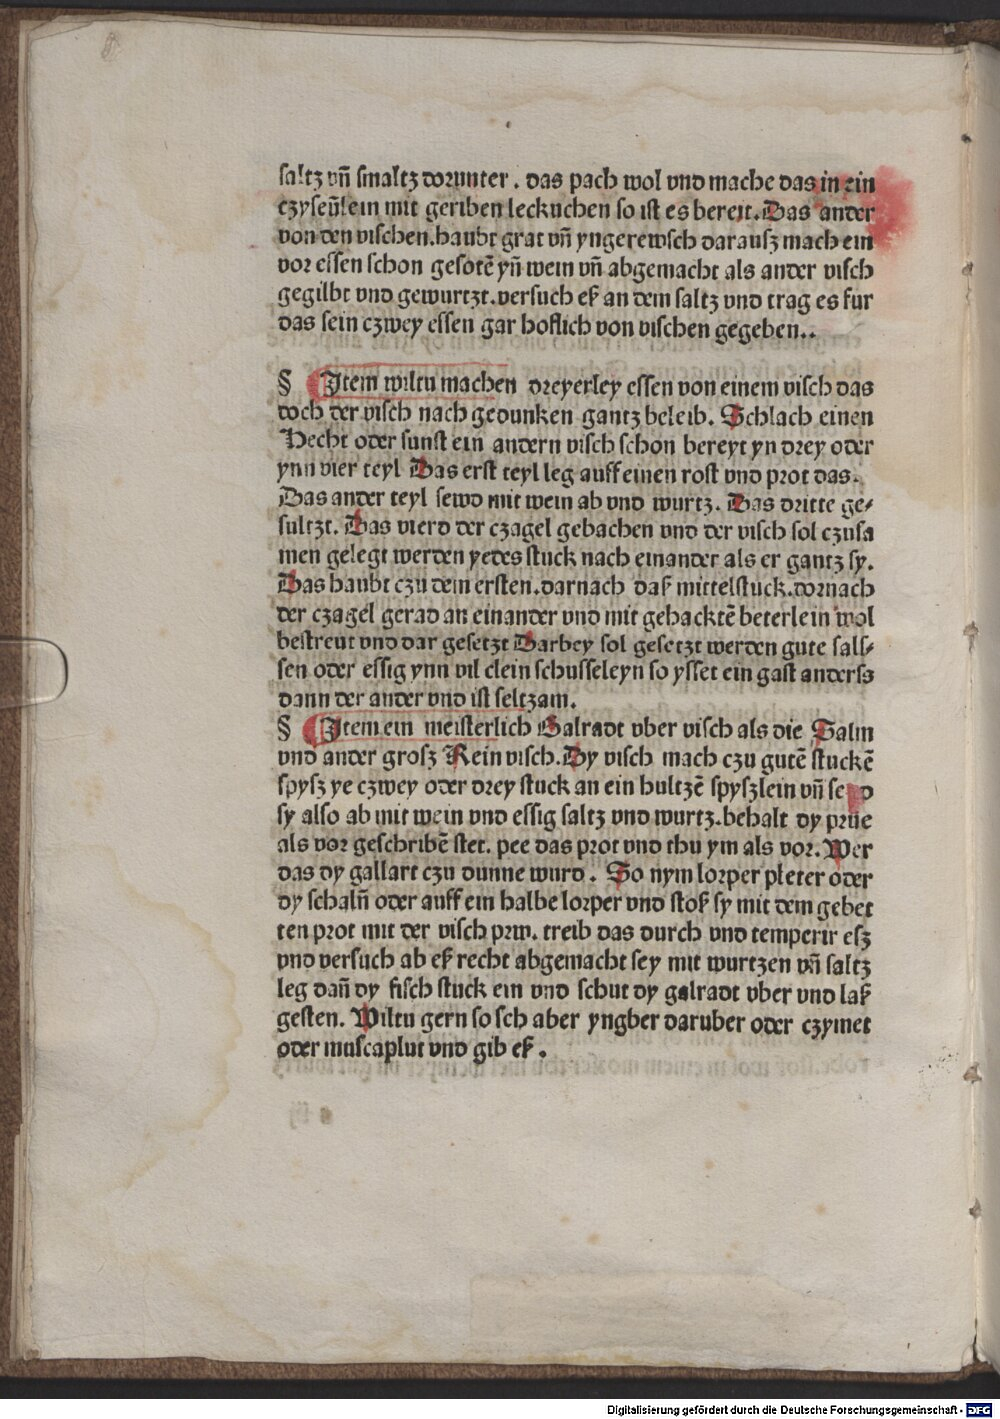 saltz vñ smaltz dorunter . das pach wol vnd mache das in ein
czyseūlein mit geriben leckuchen so ist es bereit. Das ander
von den vischen. haubt grat vñ yngerewsch darausz mach ein
vor essen schon gesotē yñ wein vñ abgemacht als ander visch
gegilbt vnd gewurtzt. versuch eß an dem saltz vnd trag es fur
das sein czwey essen gar hoflich von vischen gegeben..
§ Item wiltu machen dreyerley essen von einem visch das
doch der visch nach gedunken gantz beleib. Schlach einen
Hecht oder sunst ein andern visch schon bereyt yn drey oder
ynn vier teyl Das erst teyl leg auff einen rost vnd prot das.
Das ander teyl sewd mit wein ab vnd wurtz. Das dritte ge⸗
sultzt. Das vierd der czagel gebachen vnd der visch sol czusa
men gelegt werden yedes stuck nach einander als er gantz sy.
Das haubt czu dem ersten. darnach daß mittelstuck. dornach
der czagel gerad an einander vnd mit gehacktē beterlein wol
bestreut vnd dar gesetzt Darbey sol gesetzt werden gute sals⸗
sen oder essig ynn vil clein schusseleyn so ysset ein gast anders
dann der ander vnd ist seltzam.
§ Item ein meisterlich Galradt vber visch als die Salm
vnd ander grosz Rein visch. Dy visch mach czu gutē stuckē
spysz ye czwey oder drey stuck an ein hultzē spyszlein vñ se d
sy also ab mit wein vnd essig saltz vnd wurtz. behalt dy prüe
als vor geschribē stet. pee das prot vnd thu ym als vor. Wer
das dy gallart czu dunne wurd . So nym lorper pleter oder
dy schalñ oder auff ein halbe lorper vnd stoß sy mit dem gebet
ten prot mit der visch prw. treib das durch vnd temperir esz
vnd versuch ab eß recht abgemacht sey mit wurtzen vñ saltz
leg dañ dy fisch stuck ein vnd schut dy galradt vber vnd laß
gesten. Wiltu gern so sch aber yngber daruber oder czymet
oder muscaplut vnd gib eß .
Digitalisierung gefördert durch die Deutsche Forschungsgemeinschaft - DFG